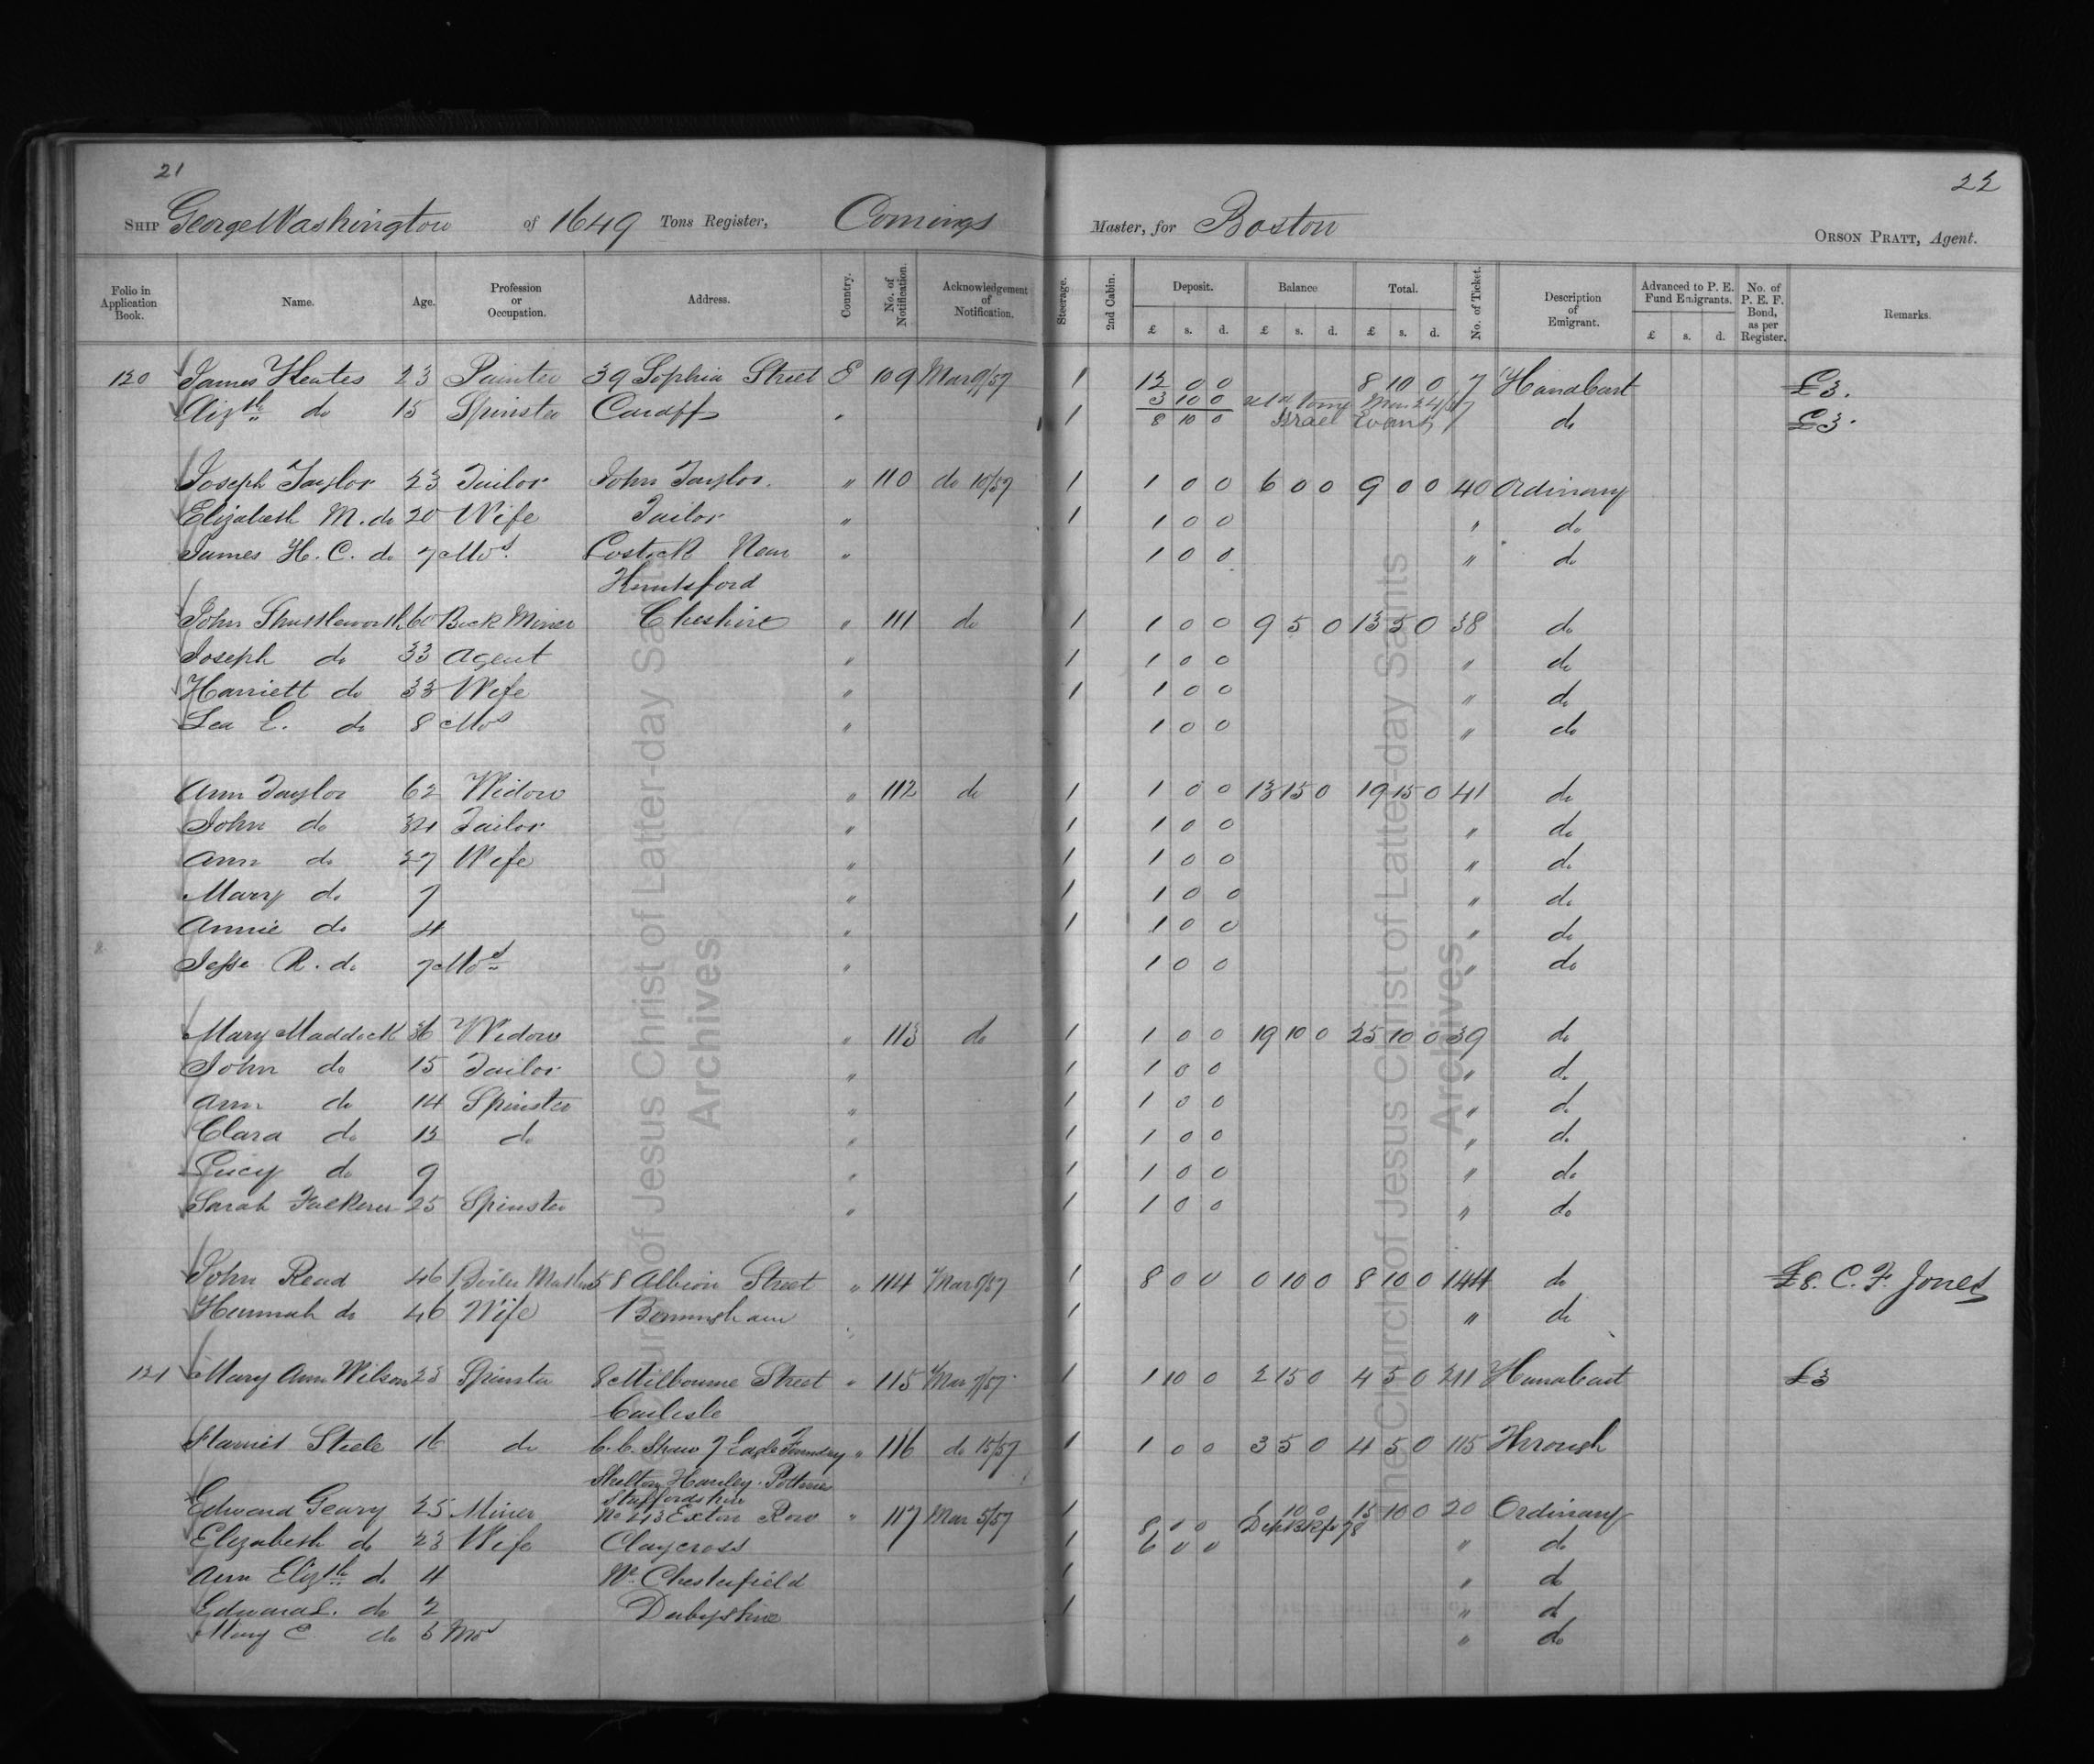 21
22
SHIP George Washington of 1649 Tons Register, Comings Master, for Boston ORSON PRATT, Agent.
Folio in Application Book. Name. Age. Profession or Occupation. Address. Country. No. of Notification. Acknowledgement of Notification. Steerage. 2nd Cabin. Deposit. Balance Total. No. of Ticket. Description of Emigrant. Advanced to P. E. Fund Emigrants. No. of P. E. F. Bond, as per Register. Remarks.
£ s. d. £ s. d. £ s. d. £ s. d.
120 James Keates 23 Painter 39 Sophia Street E 109 Mar 9/57 1 12 0 0 8 10 0 7 Handcart £3.
Elizth do 15 Spinster Cardiff " 1 3 10 0 Mar 24/57 do £3.
8 10 0 Israel Evans
Joseph Taylor 23 Tailor John Taylor. " 110 do 10/57 1 1 0 0 6 0 0 9 0 0 40 Ordinary
Elizabeth M. do 20 Wife Tailor " 1 1 0 0 " do
James H. C. do 7 Mos. Near " 1 0 0 " do
Knutsford
John Shuttleworth 60 Miner Cheshire " 111 do 1 1 0 0 9 5 0 13 5 0 38 do
Joseph do 33 Agent " 1 1 0 0 " do
Harriett do 33 Wife " 1 1 0 0 " do
Lea E. do 8 Mos " 1 0 0 " do
Ann Taylor 62 Widow " 112 do 1 1 0 0 13 15 0 19 15 0 41 do
John do Tailor " 1 1 0 0 " do
Ann do 27 Wife " 1 1 0 0 " do
Mary do 7 " 1 1 0 0 " do
Annie do 4 " 1 1 0 0 " do
Jesse R. do 7 Mos " 1 0 0 " do
Mary Maddock 36 Widow " 113 do 1 1 0 0 19 10 0 25 10 0 39 do
John do 15 Tailor " 1 1 0 0 " do
Ann do 14 Spinster " 1 1 0 0 " do
Clara do 12 do " 1 1 0 0 " do
Lucy do 9 " 1 1 0 0 " do
Sarah Falkener 25 Spinster " 1 1 0 0 " do
John Read 46 Boiler Maker 58 Albion Street " 114 Mar 9/57 1 8 0 0 0 10 0 8 10 0 144 do £8. C. F. Jones
Hannah do 46 Wife Birmingham " 1 " do
121 Mary Ann Wilson 23 Spinster 8 Milbourne Street " 115 Mar 7/57 1 1 10 0 2 15 0 4 5 0 211 Handcart £3
Carlisle
Harriet Steele 16 do Shaw 7 Eagle Foundry " 116 do 15/57 1 1 0 0 3 5 0 4 5 0 115 Through
Shelton Hanley Potteries
Staffordshire
Edward Geary 25 Miner No 213 Exton Row " 117 Mar 5/57 1 8 0 0 1 10 0 15 10 0 20 Ordinary
Elizabeth do 23 Wife Claycross 1 6 0 0 " do
Ann Elizth do 4 Nr. Chesterfield 1 " do
Edward L. do 2 Derbyshire 1 " do
Mary C do 3 Mos " do
The Church of Jesus Christ of Latter-day Saints
Archives
The Church of Jesus Christ of Latter-day Saints
Archives